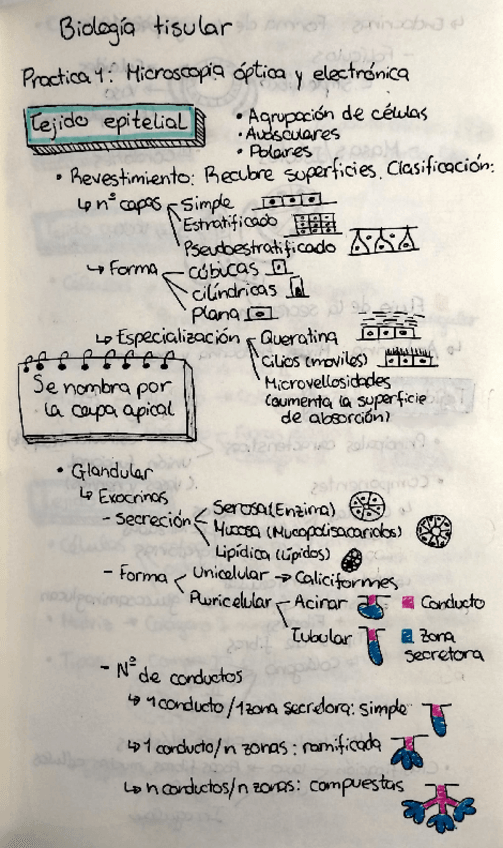 Biología tisular
Practica 1: Microscopia óptica y electrónica
Tejido epitelial
• Agrupación de células
• Avasculares
• Polares
• Revestimiento: Recubre superficies. Clasificación:
↳ nº capas
Simple
Estratificado
Pseudoestratificado
↳ Forma
cúbicas
cilíndricas
Plana
↳ Especialización
Queratina
Cilios (moviles)
Microvellosidades
(aumenta la superficie
de absorción)
Se nombra por
la capa apical
• Glandular
↳ Exocrinas
- Secreción
Serosa (Enzima)
Mucosa (Mucopolisacaridos)
Lipídica (Lípidos)
- Forma
Unicelular → Caliciformes
Pluricelular
Acinar
Tubular
Conducto
Zona
secretora
- Nº de conductos
↳ 1 conducto / 1 zona secretora: simple
↳ 1 conducto / n zonas: ramificada
↳ n conductos / n zonas: compuestas